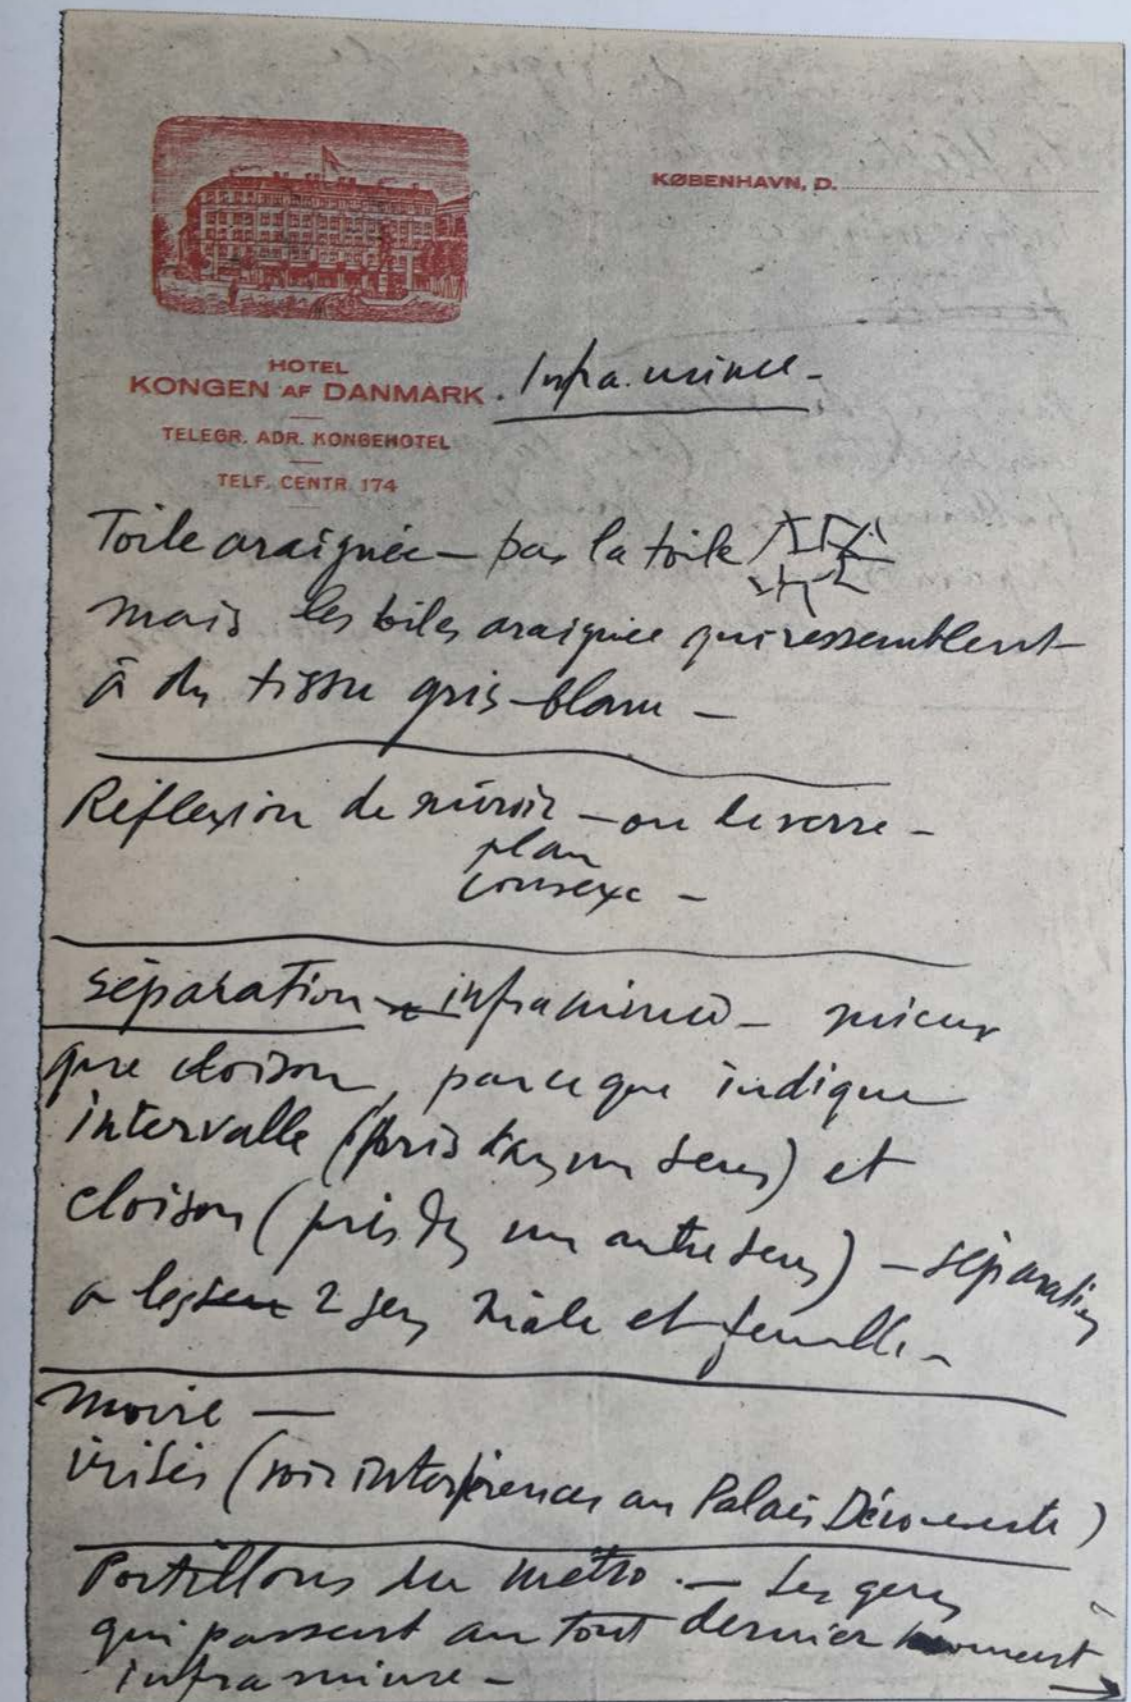 KØBENHAVN, D.
HOTEL
KONGEN AF DANMARK
TELEGR. ADR. KONGEHOTEL
TELF. CENTR. 174
Infra.mince -
Toile araignée — pas la toile
mais les toiles araignée qui ressemblent
à du tissu gris-blanc —
Réflexion de miroir — ou de verre -
plan
convexe -
séparation infra mince — mieux
que cloison, parce que indique
intervalle (pris dans un sens) et
cloison (pris ds un autre sens) — séparation
a les sens 2 sens mâle et femelle -
moire —
irisés (voir interférences au Palais Découverte)
Portillons du métro. — Les gens
qui passent au tout dernier moment
infra mince -